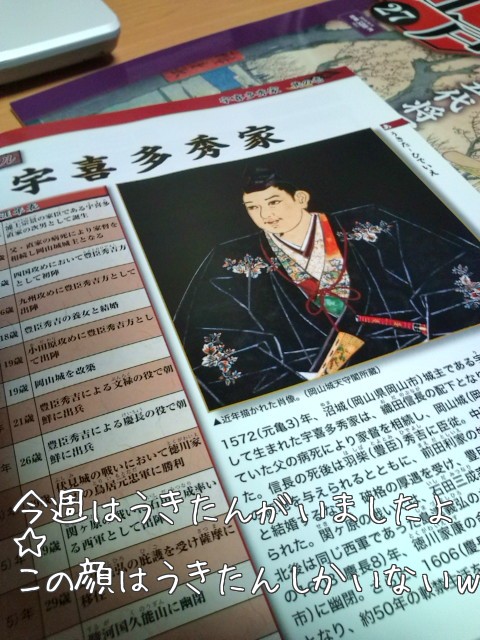 宇喜多秀家
27
五代将
宇喜多秀家
うきた・ひでいえ
浦上宗景の家臣である宇喜多
直家の次男として誕生
父・直家の病死により家督を
相続し岡山城城主となる
四国攻めにおいて豊臣秀吉方
として初陣
九州攻めに豊臣秀吉方として
出陣
豊臣秀吉の養女と結婚
小田原攻めに豊臣秀吉方とし
て出陣
19歳
岡山城を改築
21歳
豊臣秀吉による文禄の役で朝
鮮に出兵
26歳
豊臣秀吉による慶長の役で朝
鮮に出兵
伏見城の戦いにおいて徳川家
の鳥居元忠軍に勝利
る西軍として出陣
の庇護を受け薩摩に
29歳
駿河国久能山に幽閉
▲近年描かれた肖像。(岡山城天守閣所蔵)
1572(元亀3)年、沼城(岡山県岡山市)城主である宇
して生まれた宇喜多秀家は、織田信長の配下となり
ていた父の病死により家督を相続し、岡山城(岡
た。信長の死後は羽柴(豊臣)秀吉に臣従。中
を与えられるとともに、
格の厚遇を受け、豊
と結婚
前田利家の
られた。関ケ原の戦い
石田三成
北後は同じ西軍であ
慶長8)年、徳川家康の
市)に幽閉。
1606(慶長
となり、約50年の
今週はうきたんがいましたよ
☆
この顔はうきたんしかいないw